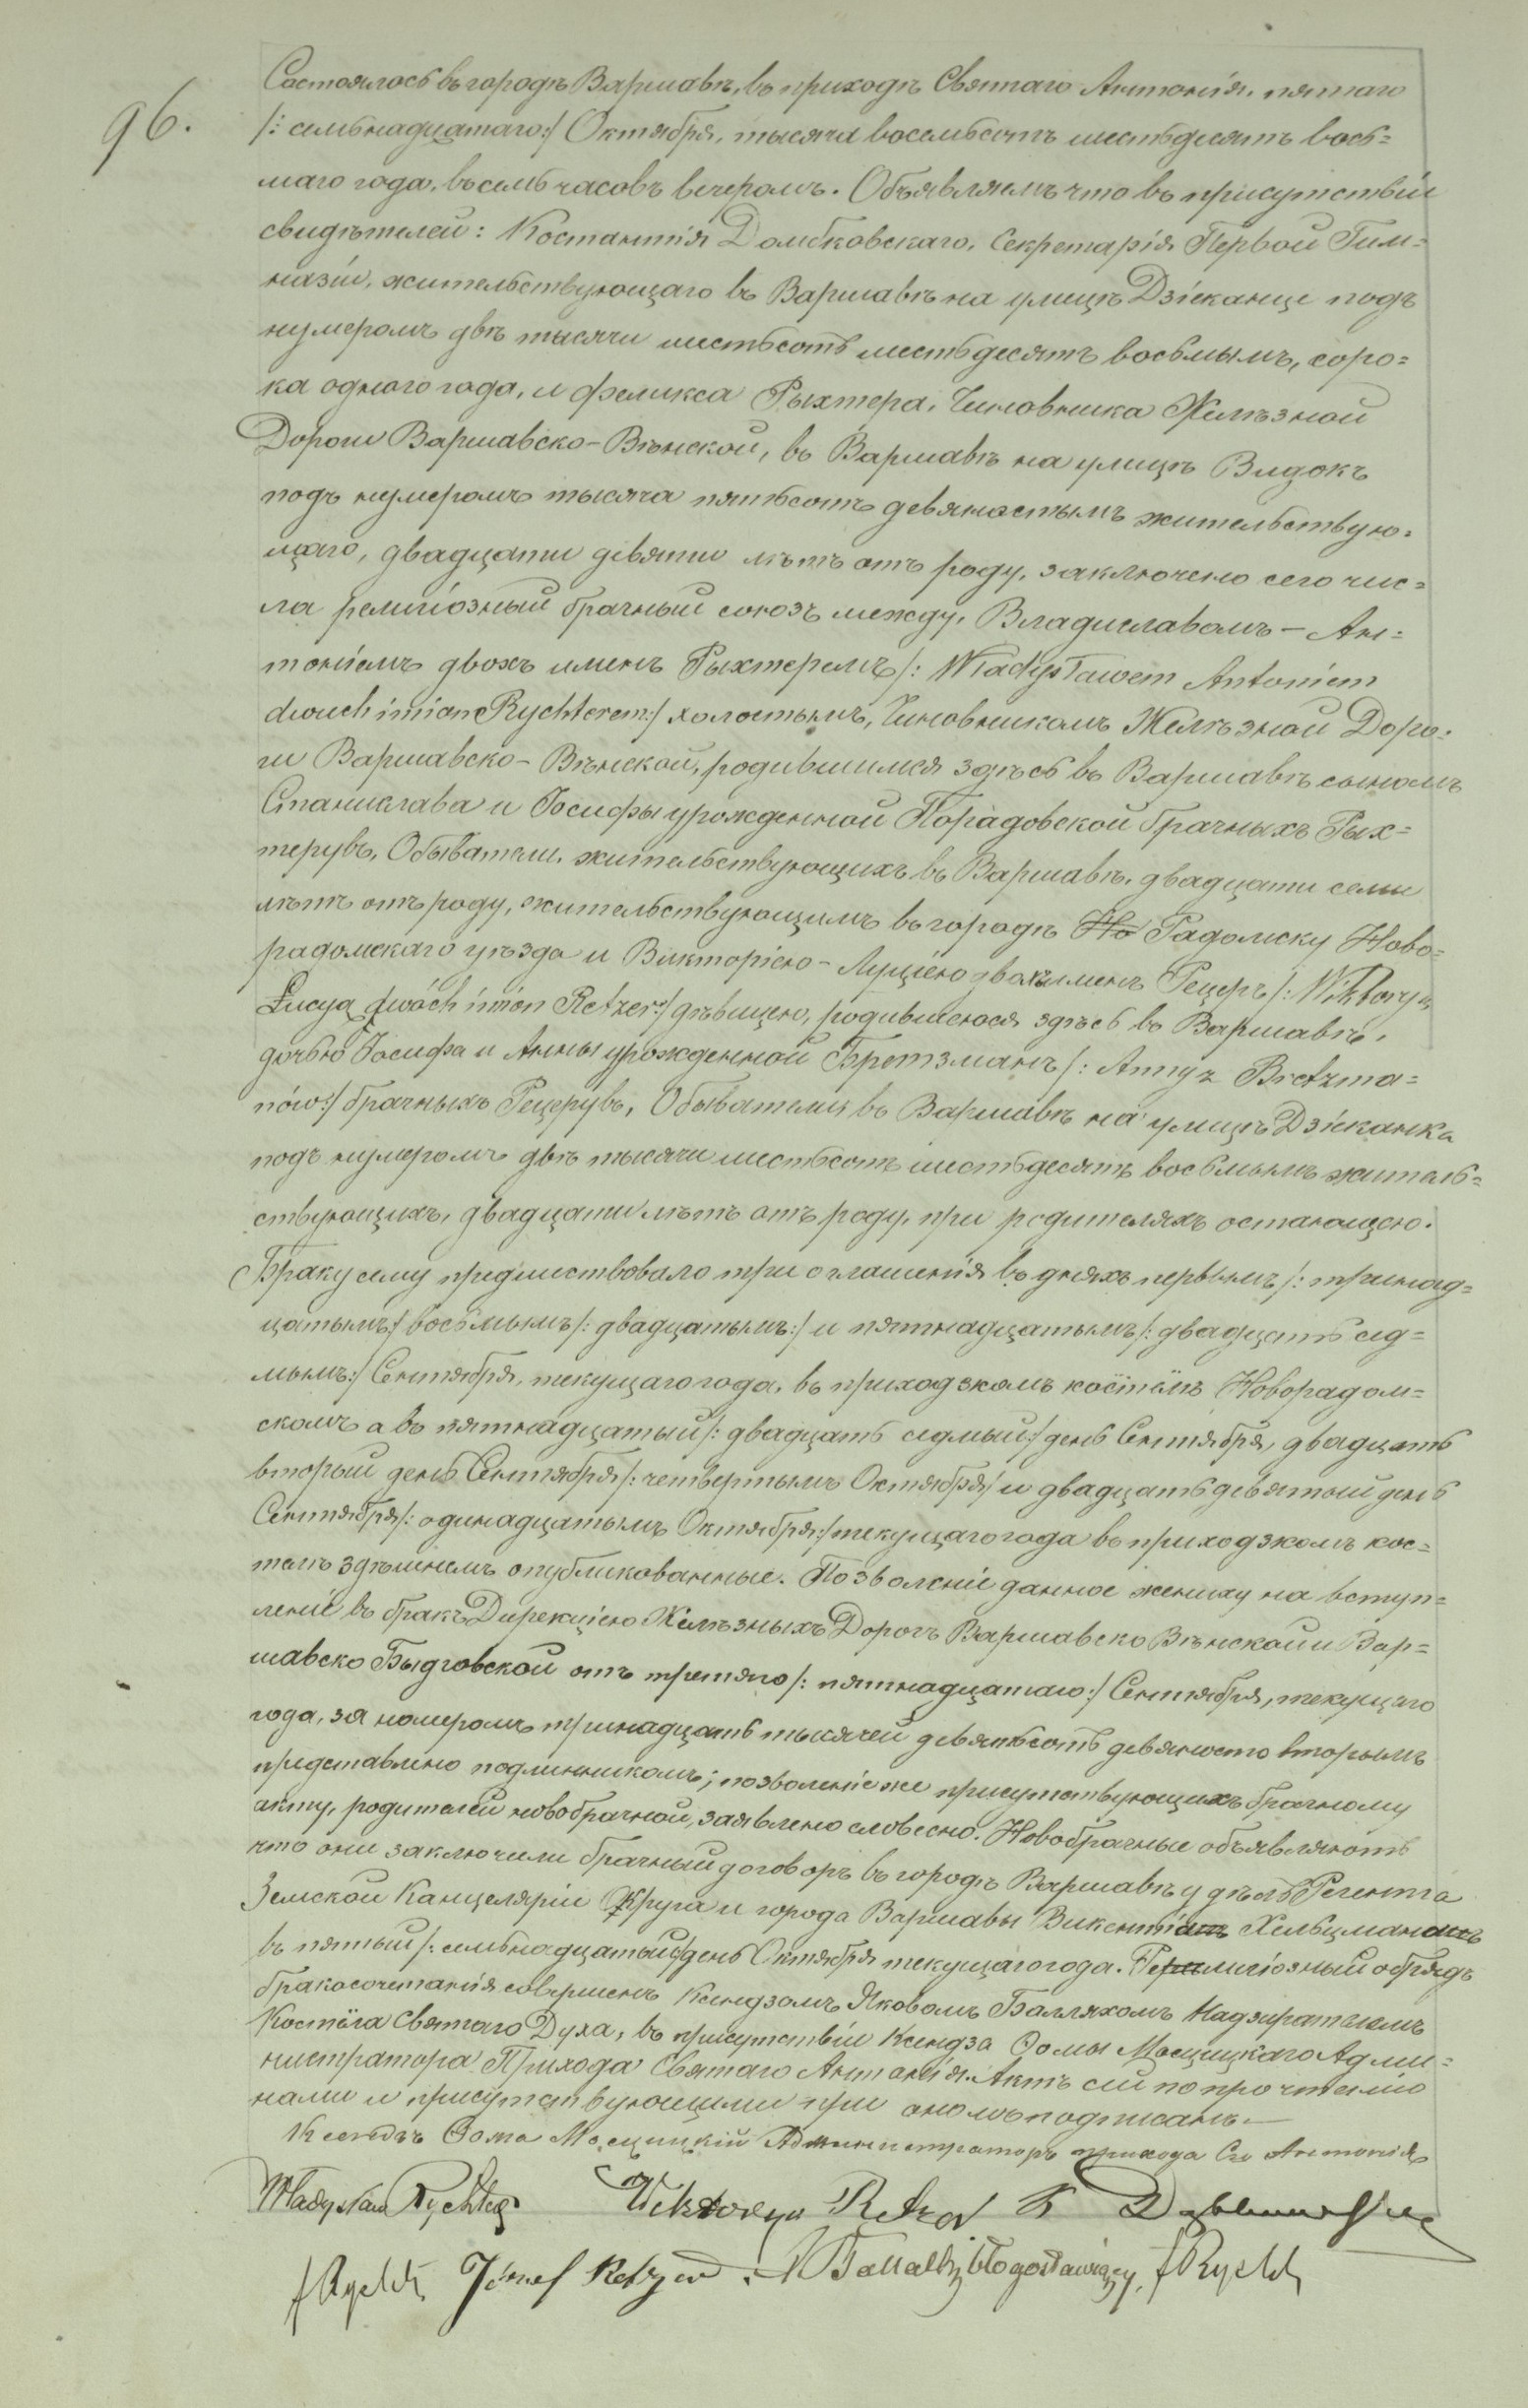 96.
Состоялось въ городѣ Варшавѣ, въ приходѣ Святаго Антонія, пятаго
/: семьнадцатаго:/ Октября, тысяча восемьсотъ шестьдесятъ вось=
маго года, въ семь часовъ вечеромъ. Объявляемъ что въ присутствіи
свидѣтелей: Костантія Домбковскаго, Секретарія Первой Гим=
назіи, жительствующаго въ Варшавѣ на улицѣ Дзіеканце подъ
нумеромъ двѣ тысячи шестьсотъ шестьдесятъ восьмымъ, соро=
ка одного года, и Феликса Рыхтера, Чиновника Желѣзной
Дороги Варшавско-Вѣнской, въ Варшавѣ на улицѣ Видокъ
подъ нумеромъ тысяча пятьсотъ девяностымъ жительствую=
щаго, двадцати девяти лѣтъ отъ роду, заключено сего чис=
ла религіозный брачный союзъ между, Владиславомъ-Ан=
тоніемъ двохъ именъ Рыхтеремъ /: Władysławem Antoniem
dwuch imion Rychterem:/ холостымъ, Чиновникомъ Желѣзной Доро=
ги Варшавско-Вѣнской, родившимся здѣсь въ Варшавѣ сыномъ
Станислава и Іосифы урожденной Порадовской брачныхъ Рых=
терувъ, Обыватели, жительствующихъ въ Варшавѣ, двадцати семи
лѣтъ отъ роду, жительствующимъ въ городѣ Но Радомску Ново=
радомскаго уѣзда и Викторіею-Луціею двохъ именъ Рецеръ /: Wiktoryą
Łucyą dwóch imion Retzer:/ дѣвицею, родившеюся здѣсь въ Варшавѣ,
дочью Іосифа и Анны урожденной Бретзманъ /: Anny z Bretzma=
nów:/ брачныхъ Рецерувъ, Обыватели въ Варшавѣ на улицѣ Дзіеканка
подъ нумеромъ двѣ тысячи шестьсотъ шестьдесятъ восьмымъ житель=
ствующихъ, двадцати лѣтъ отъ роду, при родителяхъ остающею.
Браку сему предшествовало три оглашенія въ дняхъ первымъ /: тринад=
цатымъ:/ восьмымъ /: двадцатымъ:/ и пятнадцатымъ /: двадцать сед=
мымъ:/ Сентября, текущаго года, въ приходзкомъ костёлѣ Новорадом=
скомъ а въ пятнадцатый /: двадцать седмый:/ день Сентября, двадцать
вторый день Сентября /: четвертымъ Октября:/ и двадцать девятый день
Сентября /: одинадцатымъ Октября:/ текущаго года въ приходзкомъ кос=
телѣ здѣшнемъ опубликованные. Позволеніе данное жениху на вступ=
леніе въ бракъ Дирекціею Желѣзныхъ Дорогъ Варшавско Вѣнской и Вар=
шавско Быдговской отъ третяго /: пятнадцатаго:/ Сентября, текущаго
года, за номеромъ тринадцать тысячей девятьсотъ девяносто вторымъ
представлено подлинникомъ; позволеніе же присутствующихъ брачному
акту, родителей новобрачной, заявлено словесно. Новобрачные объявляютъ
что они заключили брачный договоръ въ городѣ Варшавѣ у дѣлъ Регента
Земской Канцеляріи Округа и города Варшавы Викентіамъ Хельцманамъ
въ пятый /: семьнадцатый:/ день Октября текущаго года. Религіозный обрядъ
бракосочетанія совершенъ Ксендзомъ Яковомъ Балляхомъ Надзирателемъ
Костёла Святаго Духа, въ присутствіи Ксендза Ѳомы Мосцицкаго Адми=
нистратора Прихода Святаго Антонія. Актъ сей по прочтенію
нами и присутствующими при ономъ подписанъ.—
Ксендзъ Ѳома Мосцицкій Администраторъ прихода Св Антонія
Władysław Rychter Wiktorya Retzer K Dąbkowski
F Rychter Józef Retzer. błogosławiący, F Rychter